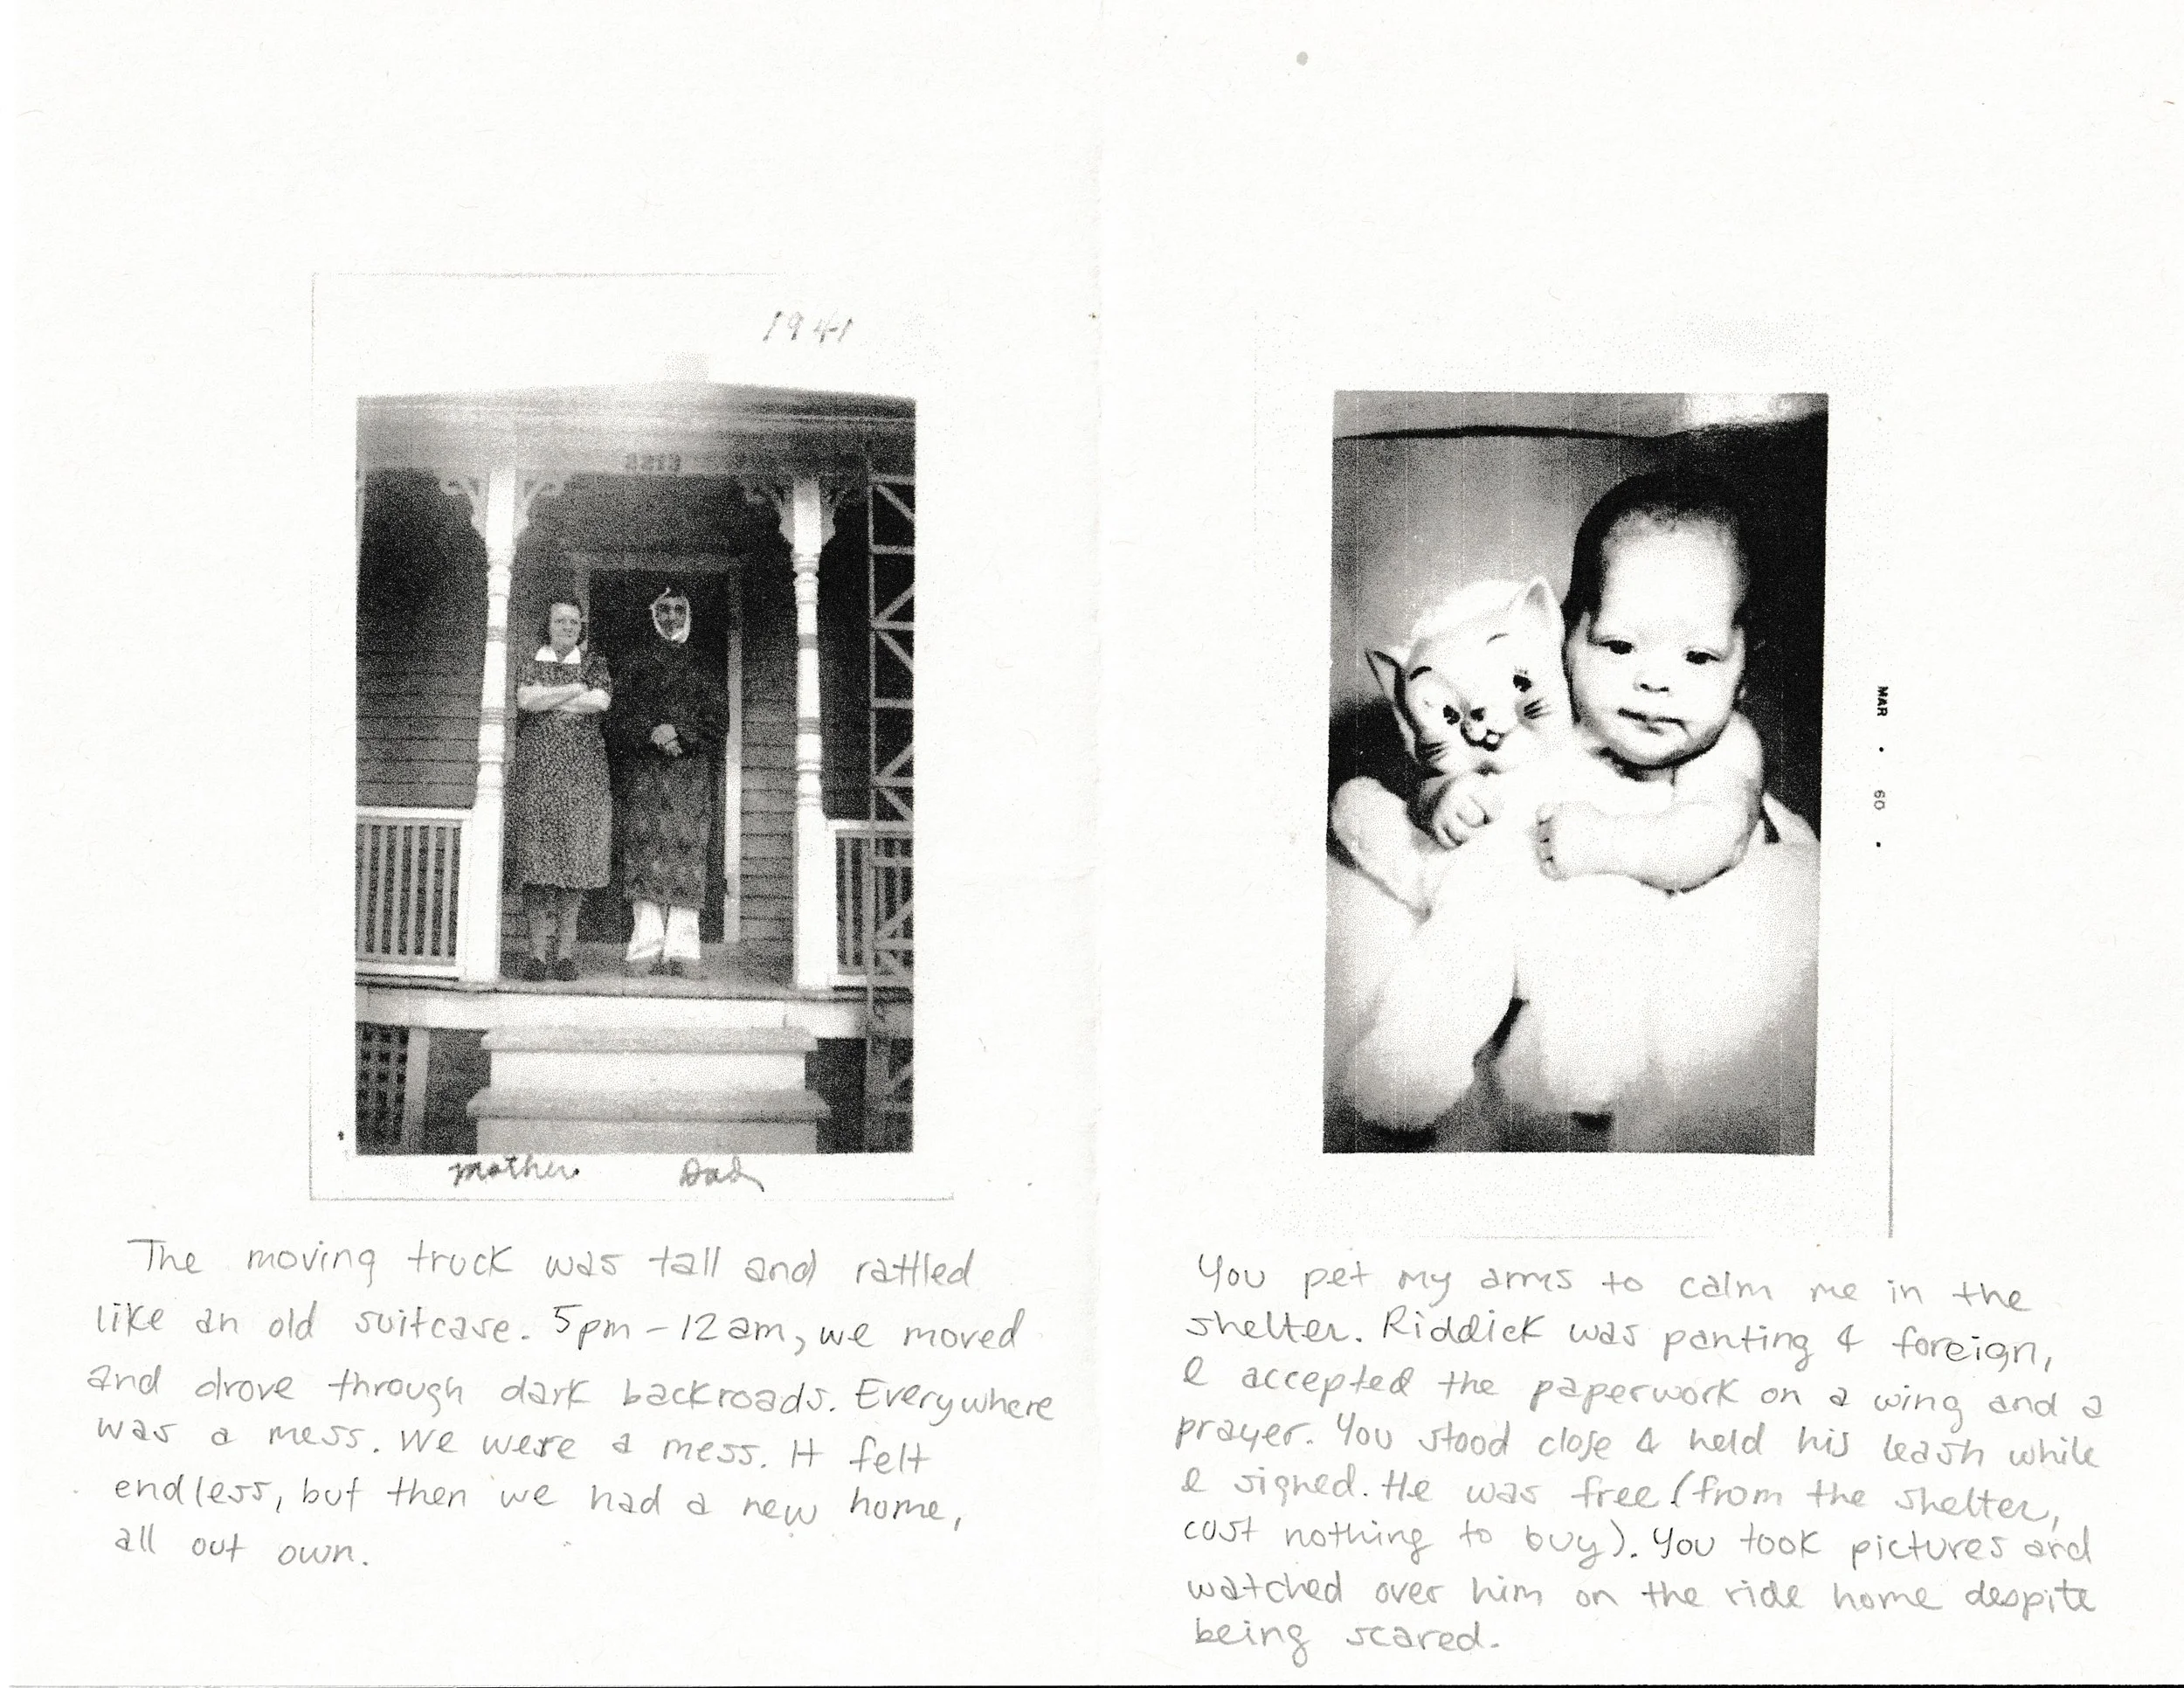 1941
3213
mother Dad
The moving truck was tall and rattled
like an old suitcase. 5pm-12am, we moved
and drove through dark backroads. Everywhere
was a mess. We were a mess. It felt
endless, but then we had a new home,
all out own.
MAR • 60 •
You pet my arms to calm me in the
shelter. Riddick was panting & foreign,
I accepted the paperwork on a wing and a
prayer. You stood close & held his leash while
I signed. He was free (from the shelter,
cost nothing to buy). You took pictures and
watched over him on the ride home despite
being scared.